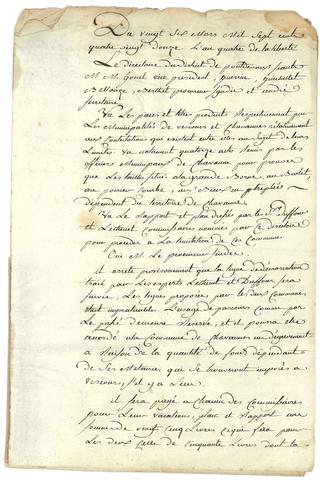 Du vingt six Mars Mil Sept cent
quatre vingt douze L'an quatre de la liberté
Le directoire du district de
M M. vice president,
Berthet procureur sindic et
Secretaire
Vu Les pieces et titres produits Respectivement par
Les Municipalités de et Chavannes relativement
aux Contestations qui existent entre elles au Sujet de leurs
Limites Vu notament quatorze actes remis par les
officiers Municipaux de Chavanne pour prouver
que Les tailles situé a la grande au
au poirier
dependent du territoire de Chavanne
Vu Le Rapport et plan dressés par les Srs Duffour
et Commissaires nommés par Ce directoire
pour proceder a La limitation de Ces Communes
Oui M. Le procureur sindic
il arrete provisoirement que la ligne de démarcation
tracé par Les experts et Duffour sera
suivie, Les lignes proposées par les deux Communes
étant impraticables. L'usage de parcours comme par
Le passé demeure Reservé, et il pourra etre
accordé a la Commune de Chavannes un degrevement
a Raison de la quantité de fonds dépendant
de Ses Metairies, qui se trouveront imposés a
, s'il y a Lieu
il Sera payé a Chacun des Commissaires
pour Leurs vacations, plan et Rapport une
somme de vingt Cinq Livres ce qui fera pour
Les deux Celle de Cinquante Livres dont la